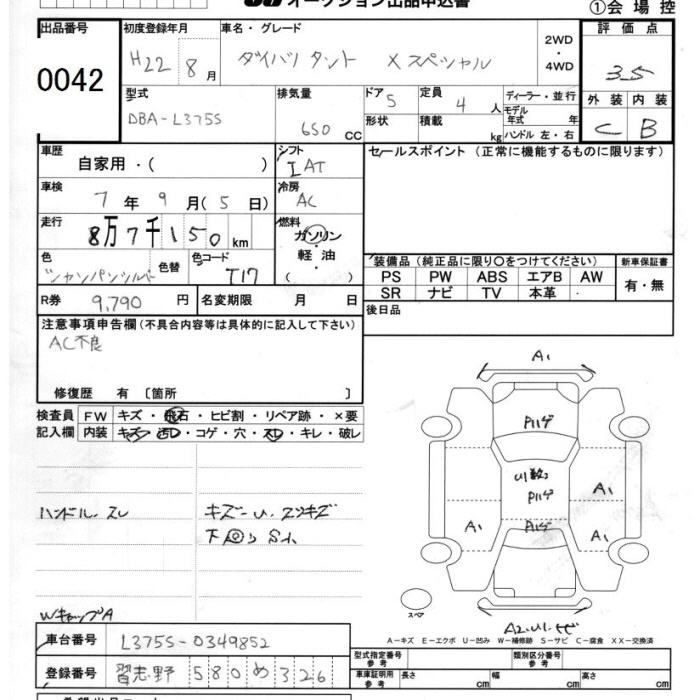 オークション出品申込書
①会場控
出品番号 0042
初度登録年月 H22 8月
車名・グレード ダイハツ タント Xスペシャル
2WD・4WD
評価点 3.5
外装 C 内装 B
型式 DBA-L375S
排気量 650 CC
ドア 5 形状
定員 4 人 積載 kg
ディーラー・並行
モデル年式 年
ハンドル 左・右
車歴 自家用・( )
シフト IAT
セールスポイント(正常に機能するものに限ります)
車検 7年 9月(5日)
冷房 AC
走行 8万7千150km
燃料 ガソリン・軽油 ( )
色 シャンパンシルバー 色替 色コード T17
装備品(純正品に限り○をつけてください) 新車保証書
PS PW ABS エアB AW
SR ナビ TV 本革 ・
有・無
R券 9,790円 名変期限 月 日
後日品
注意事項申告欄(不具合内容等は具体的に記入して下さい)
AC不良
修復歴 有〔箇所 〕
検査員記入欄
FW キズ・飛石・ヒビ割・リペア跡・×要
内装 キズ・汚レ・コゲ・穴・スレ・キレ・破レ
ハンドル.スレ
キズ-U.スリキズ
下回り S1
WキャップA
A1
P1ハゲ
U1数
P1ハゲ
A1
A1
P1ハゲ
A1
A2.U1.ヒビ
スペア
A-キズ E-エクボ U-凹み W-補修跡 S-サビ C-腐食 XX-交換済
車台番号 L375S-0349852
登録番号 習志野 580 め 326
型式指定番号 参考 類別区分番号 参考
車庫証明用 参考 長さ cm 幅 cm 高さ cm